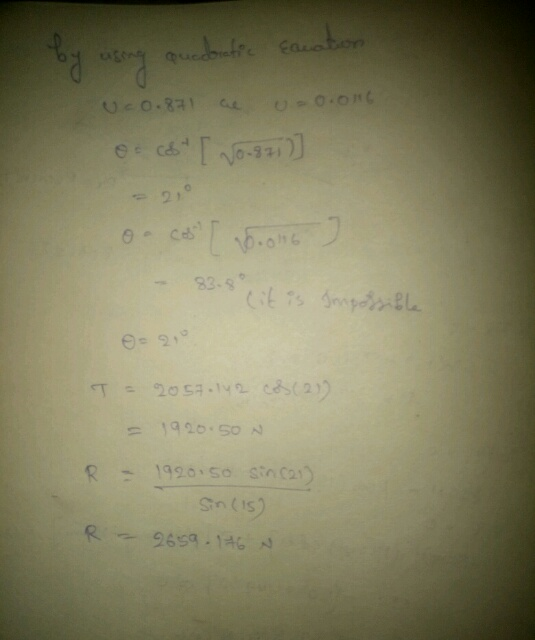 by using quadratic Equation
U = 0.871 or U = 0.0116
θ = cos⁻¹ [√0.871)]
= 21°
θ = cos⁻¹ [√0.0116]
= 83.8° (it is Impossible
θ = 21°
T = 2057.142 cos(21)
= 1920.50 N
R = 1920.50 sin(21)
sin(15)
R = 2659.176 N